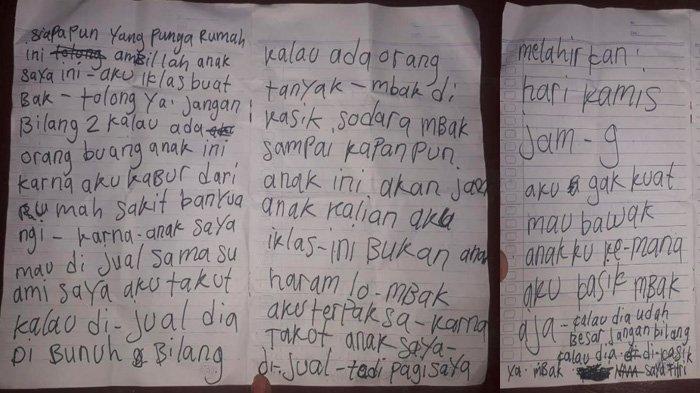 siapapun yang punga rumah
ini ambillah anak
saya ini - aku iklas buat
Bak - tolong ya. jangan
Bilang 2 kalau ada
orang buang anak ini
karna aku kabur dari
rumah sakit banyua
ngi - karna - anak saya
mau di jual sama su
ami saya aku takut
kalau di - jual dia
Di Bunuh Bilang
kalau ada orang
tanyak - mbak di
kasik sodara mbak
sampai kapanpun
anak ini akan jadi
anak kalian aku
iklas - ini Bukan anak
haram lo - mbak
aku terpaksa - karna
Takot anak saya -
di - jual - tadi pagi saya
melahirkan
hari kamis
Jam - 9
aku gak kuat
mau bawak
anakku ke - mana
aku kasik mbak
aja - kalau dia udah
Besar jangan bilang
kalau dia di - kasik
ya. mbak saya Fitri